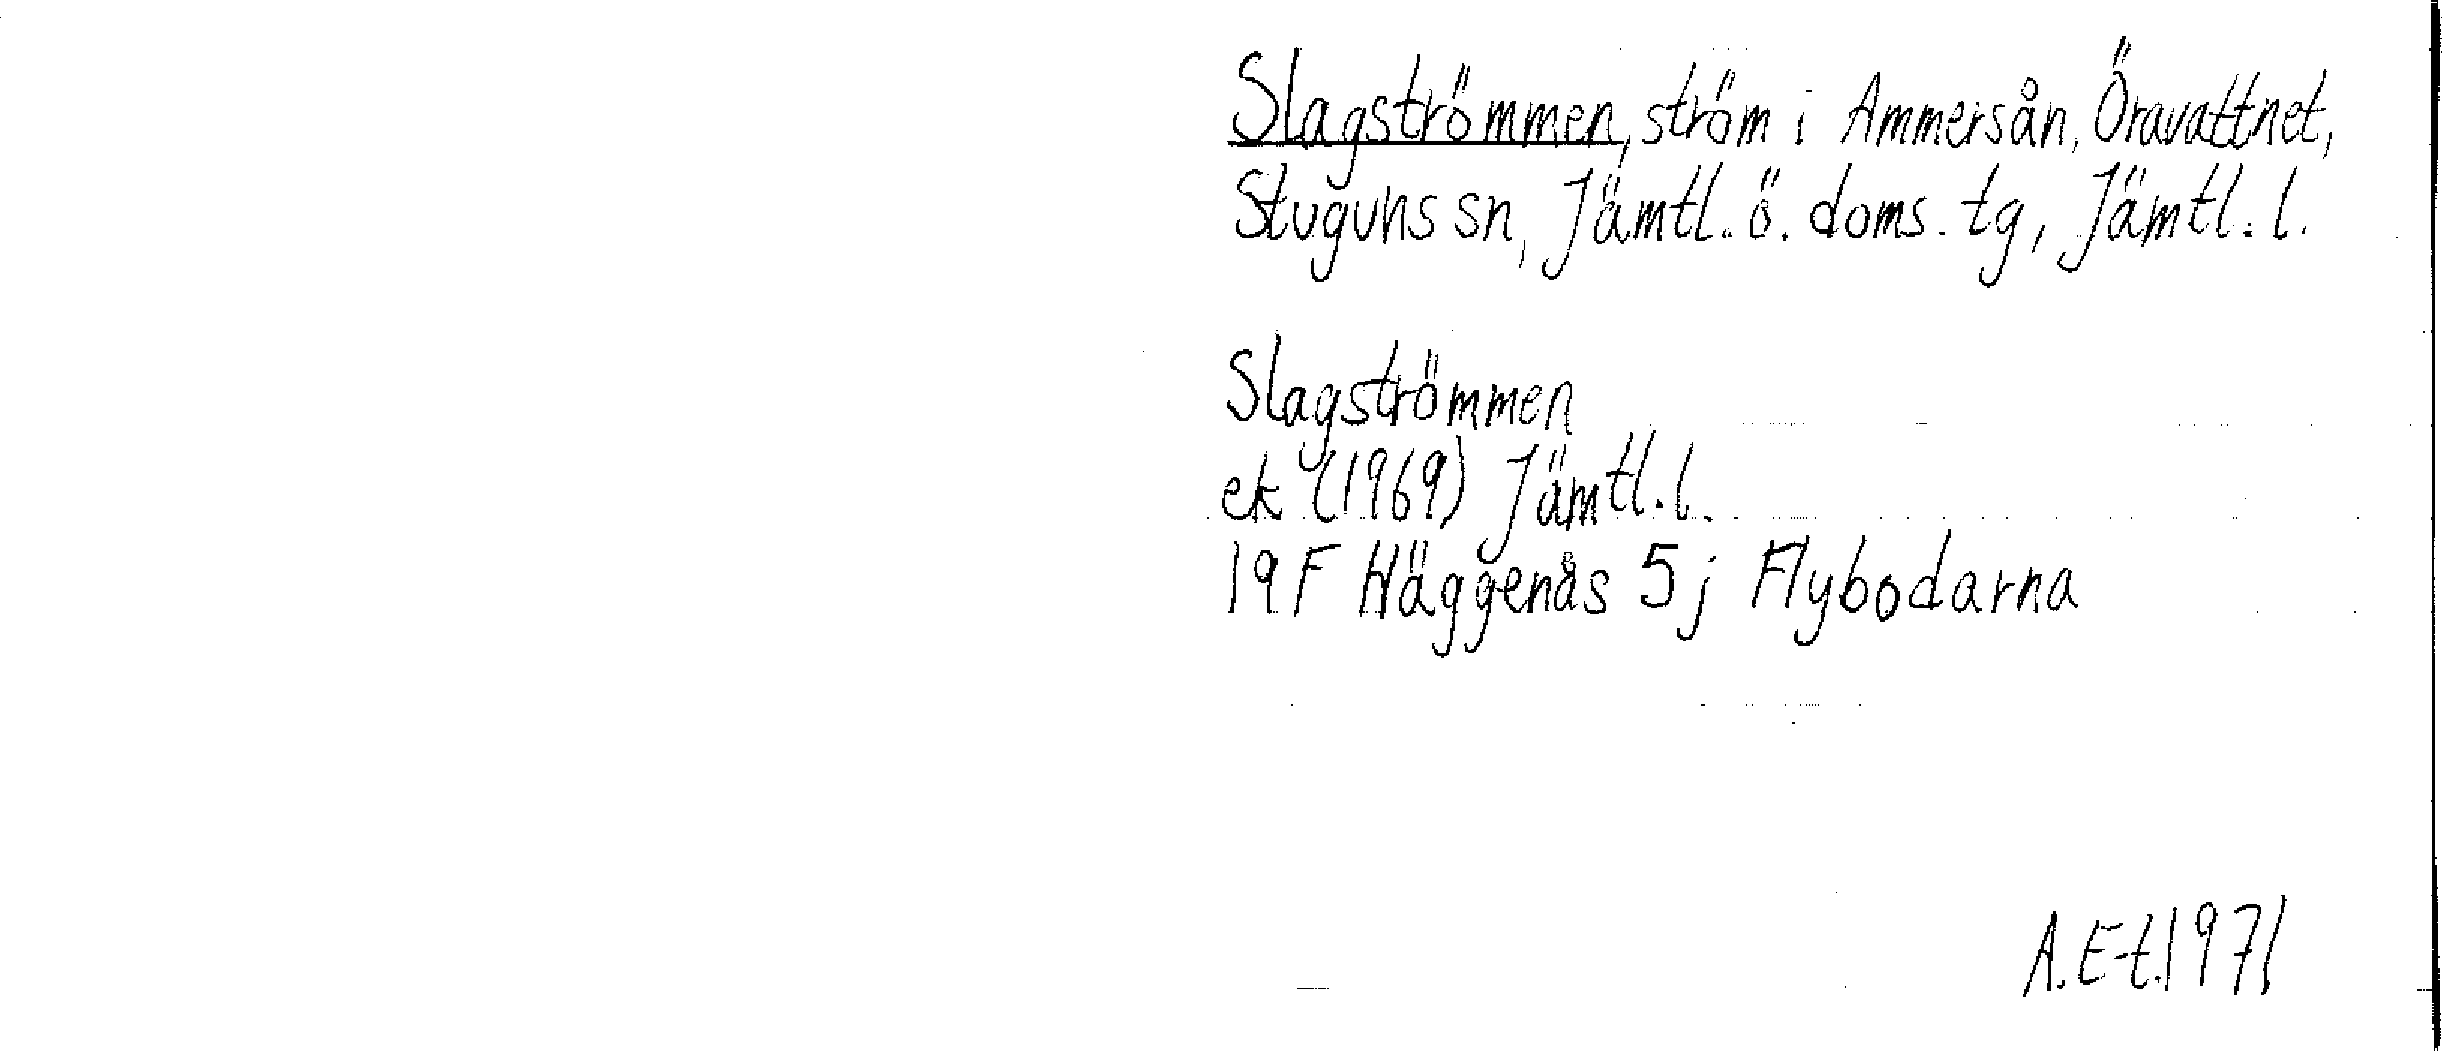 Slagströmmen, ström i Ammersån, Öravattnet,
Stuguns sn, Jämtl. ö. doms. tg, Jämtl. l.
Slagströmmen
ek (1969) Jämtl. l.
19 F Häggenås 5 j Flybodarna
A. E-t. 1971